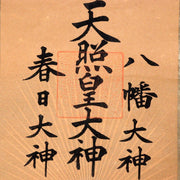 天照皇大神
八幡大神
春日大神